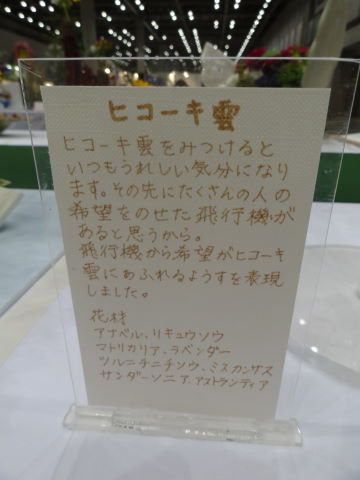 ヒコーキ雲
ヒコーキ雲をみつけると
いつもうれしい気分になり
ます。その先にたくさんの人の
希望をのせた飛行機が
あると思うから。
飛行機から希望がヒコーキ
雲にあふれるようすを表現
しました。
花材
アナベル、リキュウソウ
マトリカリア、ラベンダー
ツルニチニチソウ、ミスカンサス
サンダーソニア、アストランティア